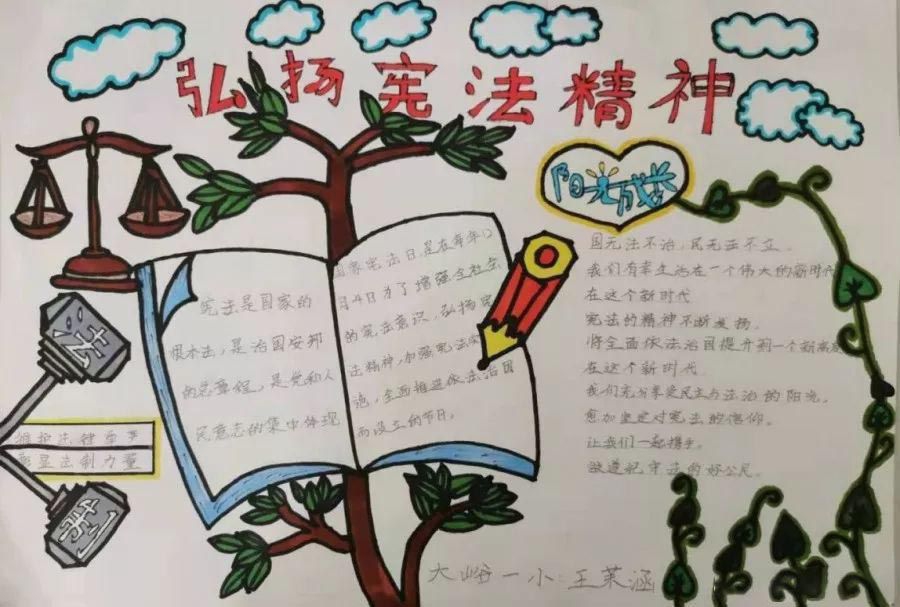 弘扬宪法精神
阳光成长
宪法是国家的
根本法，是治国安邦
的总章程，是党和人
民意志的集中体现
国家宪法日是在每年12
月4日为了增强全社会
的宪法意识，弘扬宪
法精神，加强宪法实
施，全面推进依法治国
而设立的节日。
国无法不治，民无法不立。
我们有幸生活在一个伟大的新时代
在这个新时代
宪法的精神不断发扬。
将全面依法治国提升到一个新高度
在这个新时代
我们充分享受民主与法治的阳光。
愈加坚定对宪法的信仰。
让我们一起携手。
做遵纪守法的好公民。
法
维护法律尊严
彰显法制力量
制
大峪一小：王茉涵